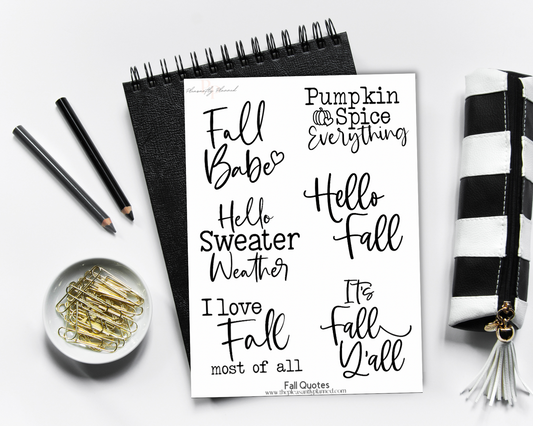 Pleasantly Planned
Fall
Babe
Pumpkin
Spice
Everything
Hello
Sweater
Weather
Hello
Fall
I love
Fall
most of all
It's
Fall
Y'all
Fall Quotes
www.thepleasantlyplanned.com